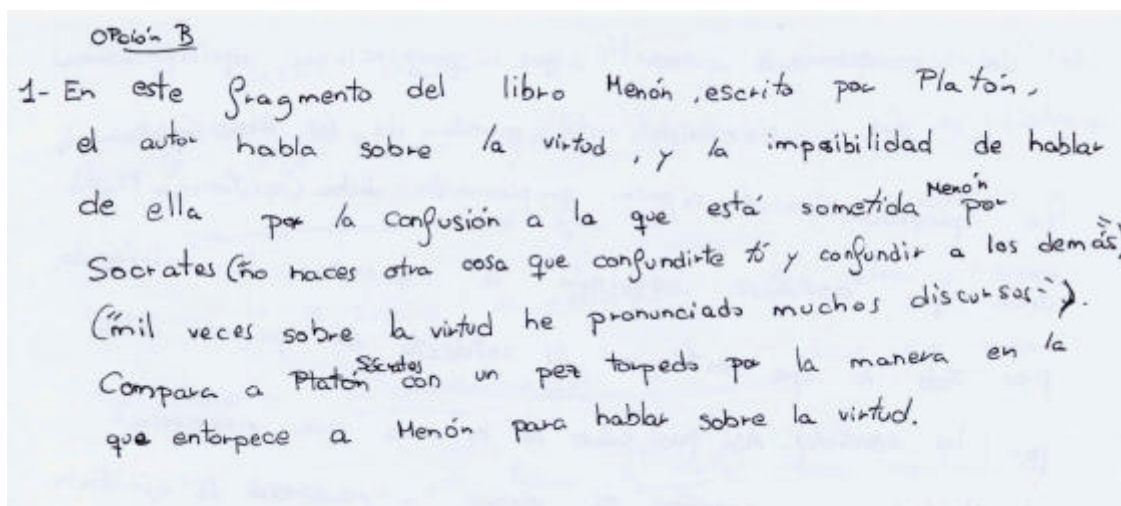 Opción B
1- En este fragmento del libro Menón, escrito por Platón,
el autor habla sobre la virtud, y la imposibilidad de hablar
de ella por la confusión a la que está sometida Menón por
Socrates ("no haces otra cosa que confundirte tú y confundir a los demás")
("mil veces sobre la virtud he pronunciado muchos discursos").
Compara a Platón Sócrates con un pez torpedo por la manera en la
que entorpece a Menón para hablar sobre la virtud.